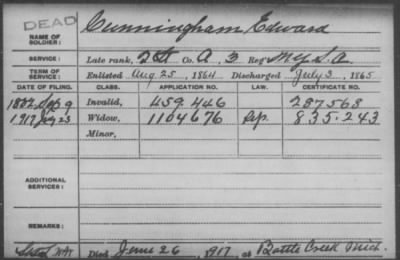 DEAD
NAME OF SOLDIER: Cunningham Edward
SERVICE: Late rank, Co. A, 3 Reg't N.Y. L. A.
TERM OF SERVICE: Enlisted Aug 25, 1864 Discharged July 3, 1865
DATE OF FILING. CLASS. APPLICATION NO. LAW. CERTIFICATE NO.
Invalid, 459.446 287568
1917 July 23 Widow, 1104676 835.243
Minor,
ADDITIONAL SERVICES:
REMARKS:
Died June 26, 1917, at Battle Creek Mich.